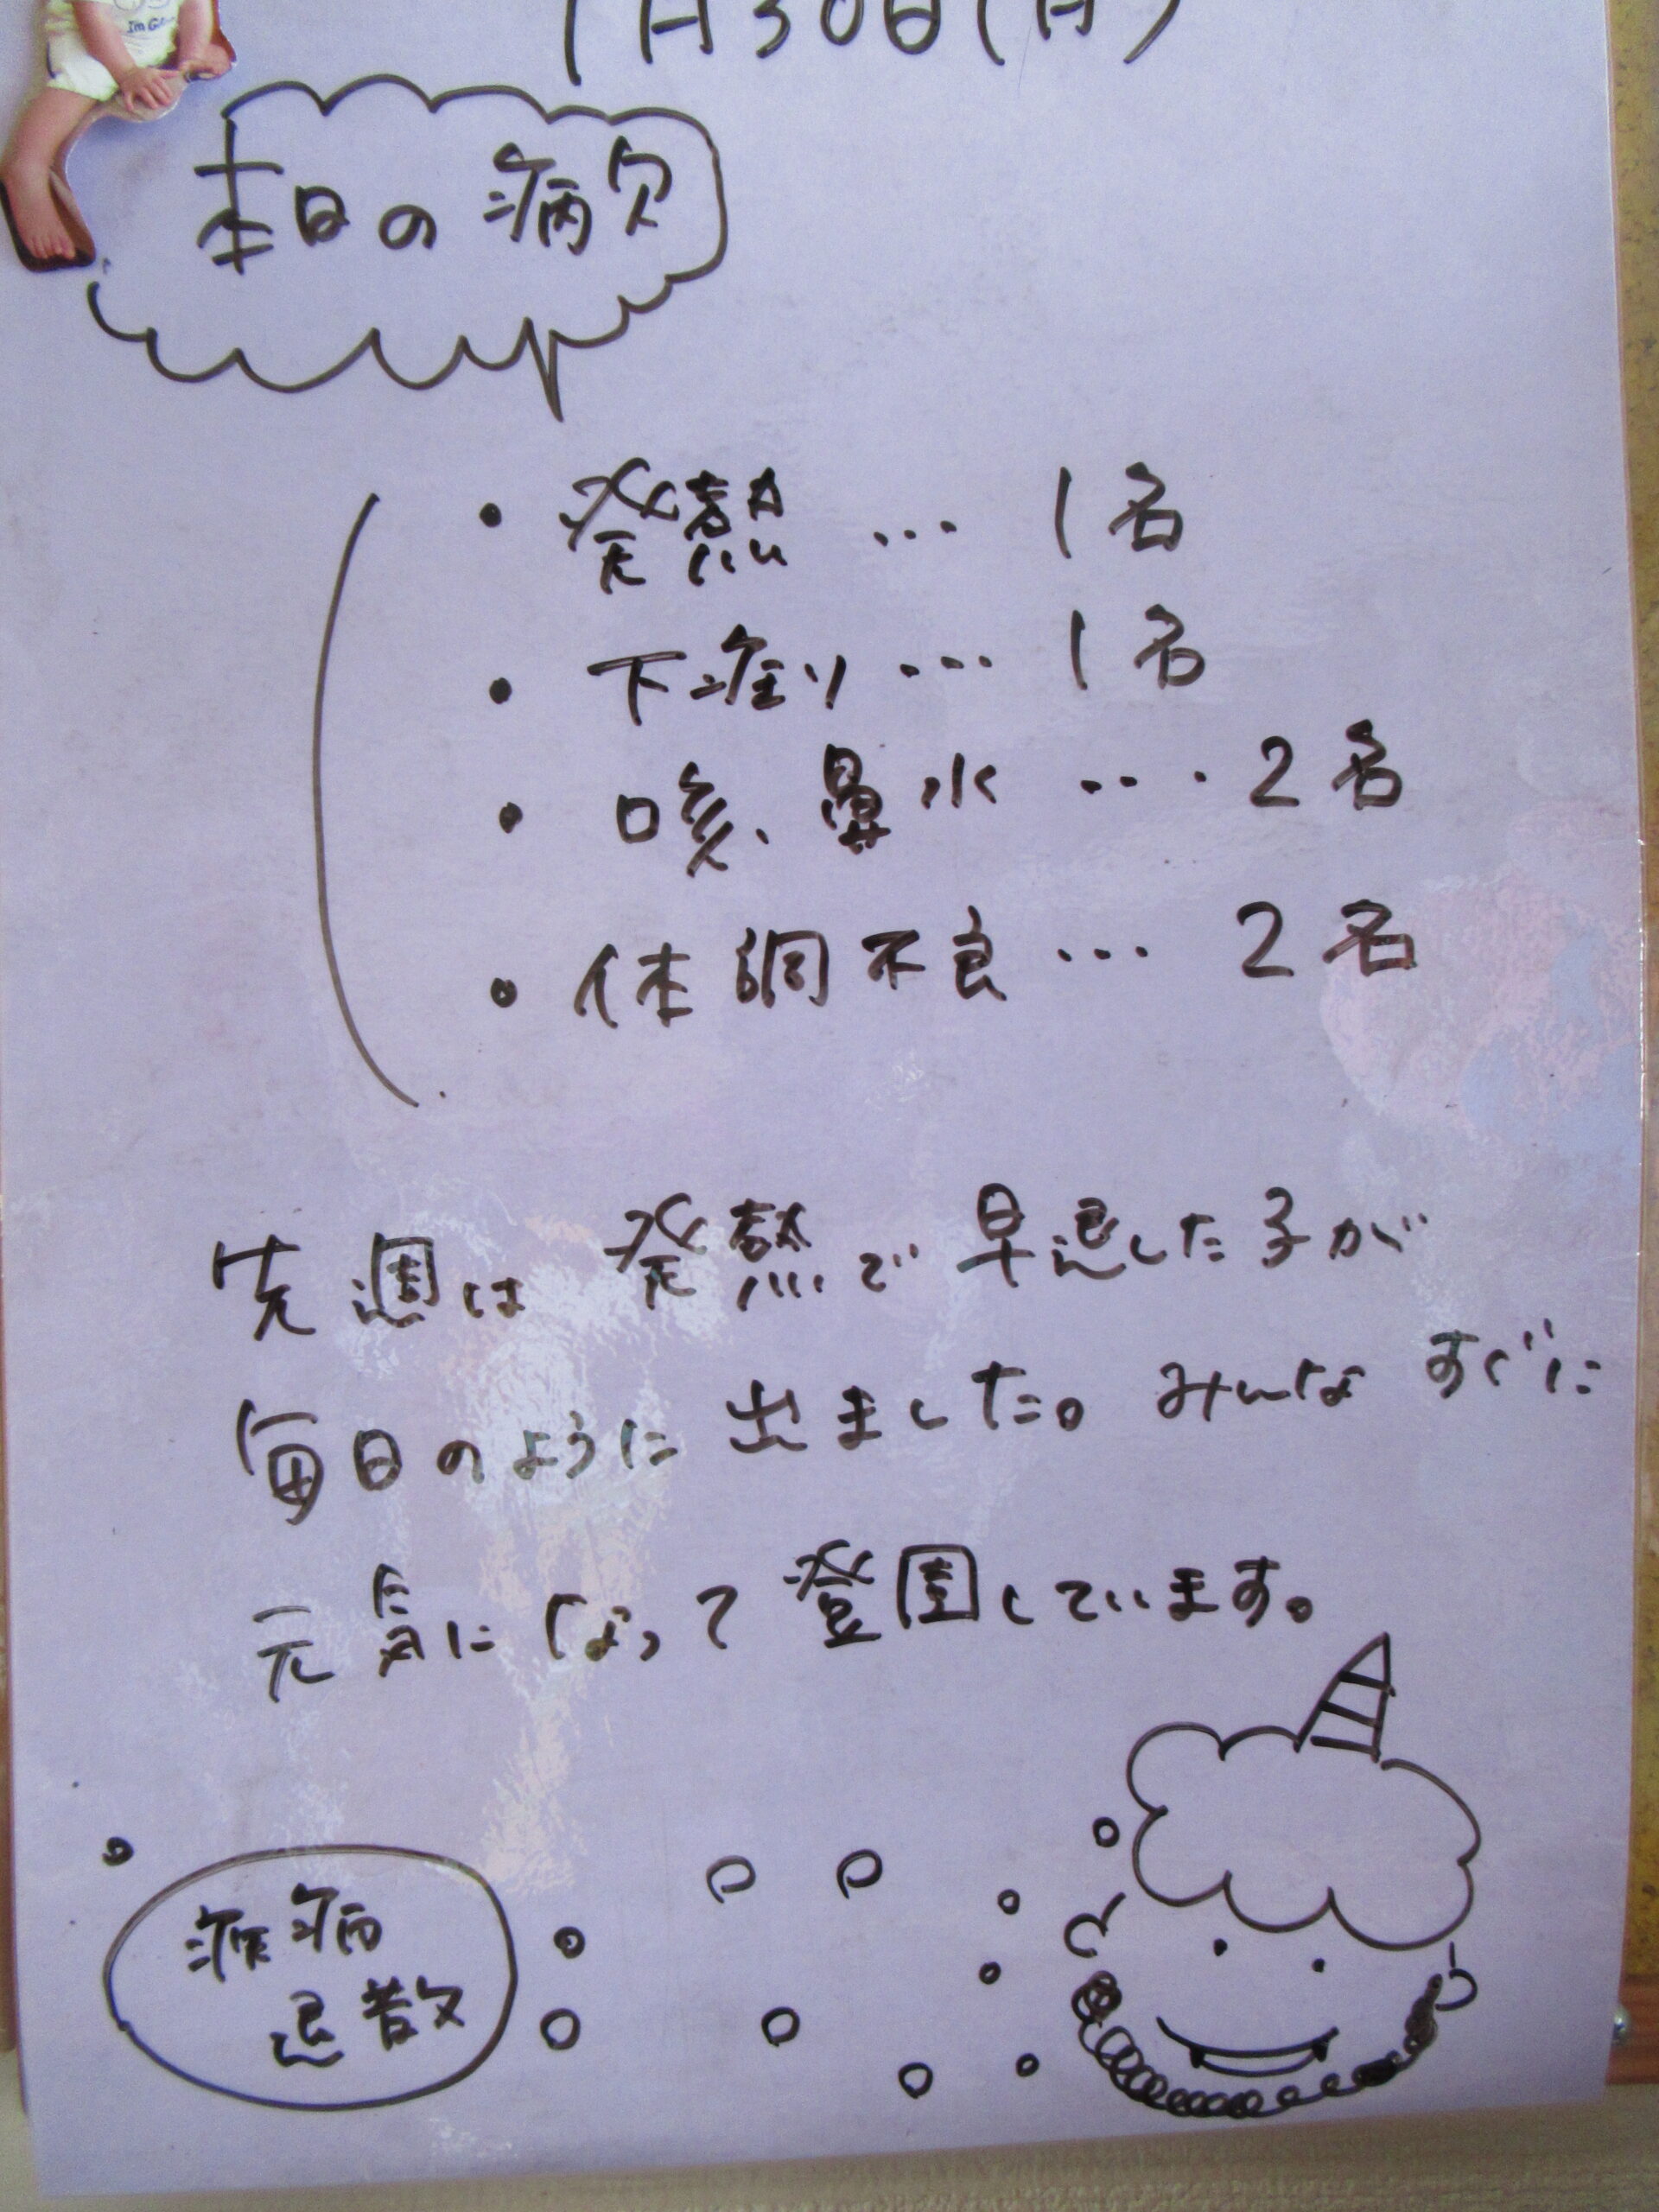 I'm G
1月30日(月)
本日の病欠
・発熱 … 1名
・下痢り … 1名
・咳、鼻水 … 2名
・体調不良 … 2名
先週は発熱で早退した子が
毎日のように出ました。みんなすぐに
元気になって登園しています。
疾病
退散